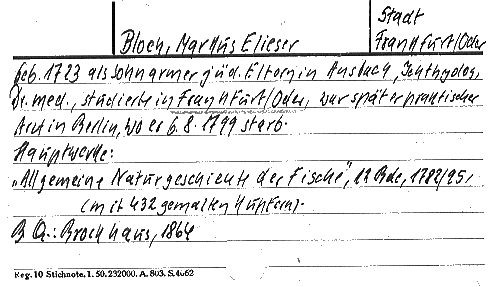 Stadt
Bloch, Markus Elieser Frankfurt/Oder
Geb. 1723 als Sohn armer jüd. Eltern in Ansbach, Ichthyolog,
Dr. med., studierte in Frankfurt/Oder, war später praktischer
Arzt in Berlin, wo er 6.8.1799 starb.
Hauptwerke:
„Allgemeine Naturgeschichte der Fische", 12 Bde, 1782/95,
(mit 432 gemalten Kupfern).
B Q.: Brockhaus, 1864
Reg. 10 Stichnote, 1. 50. 232000. A. 803. S. 4062